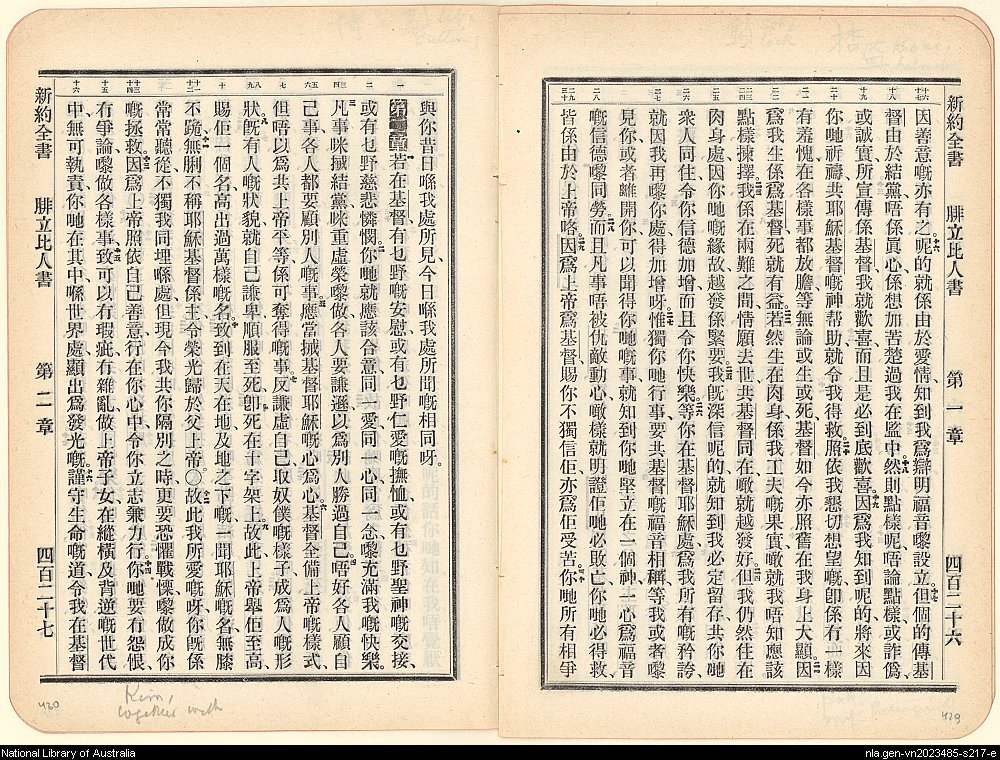 新約全書 腓立比人書 第一章 四百二十六
因善意嘅亦有之呢的就係由於愛情知到我爲辯明福音嚟設立但個的傳基
督由於結黨唔係眞心係想加苦楚過我在監中然則點樣呢唔論點樣或詐僞
或誠實所宣傳係基督我就歡喜而且是必到底歡喜因爲我知到呢的將來因
你哋祈禱共耶穌基督嘅神帮助就令我得救照依我懇切想望嘅卽係有一樣
有羞愧在各樣事都放膽等無論或生或死基督如今亦照舊在我身上大顯因
爲我生係爲基督死就有益若然生在肉身係我工夫嘅果實噉就我唔知應該
點樣揀擇我係在兩難之間情願去世共基督同在噉就越發好但我仍然住在
肉身處因你哋嘅緣故越發係緊要我旣深信呢的就知到我必定留存共你哋
衆人同住令你信德加增而且令你快樂等你在基督耶穌處爲我所有嘅矜誇
就因我再嚟你處得加增呀惟獨你哋行事要共基督嘅福音相稱等我或者嚟
見你或者離開你可以聞得你哋嘅事就知到你哋堅立在一個神一心爲福音
嘅信德嚟同勞而且凡事唔被仇敵動心噉樣就明證佢哋必敗亡你哋必得救
皆係由於上帝咯因爲上帝爲基督賜你不獨信佢亦爲佢受苦你哋所有相爭
429
與你昔日喺我處所見今日喺我處所聞嘅相同呀
第二章若在基督有乜野嘅安慰或有乜野仁愛嘅撫恤或有乜野聖神嘅交接
或有乜野慈悲憐憫你哋就應該合意同一愛同一心同一念嚟充滿我嘅快樂
凡事咪搣結黨咪重虛榮嚟做各人要謙遜以爲別人勝過自己唔好各人顧自
己事各人都要顧別人嘅事應當搣基督耶穌嘅心爲心基督全備上帝嘅樣式
但唔以爲共上帝平等係可奪得嘅事反謙虛自己取奴僕嘅樣子成爲人嘅形
狀旣有人嘅狀貌就自己謙卑順服至死卽死在十字架上故此上帝舉佢至高
賜佢一個名高出過萬樣嘅名致到在天在地及地之下嘅一聞耶穌嘅名無膝
不跪無脷不稱耶穌基督係主令榮光歸於父上帝〇故此我所愛嘅呀你旣係
常常聽從不獨我同埋喺處但現今我共你隔別之時更要恐懼戰慄嚟做成你
嘅拯救因爲上帝照依自己善意行在你心中令你立志兼力行你哋要冇怨恨
冇爭論嚟做各樣事致可以冇瑕疵冇雜亂做上帝子女在縱橫及背逆嘅世代
中無可執責你哋在其中喺世界處顯出爲發光嘅謹守生命嘅道令我在基督
新約全書 腓立比人書 第二章 四百二十七
together with
430
National Library of Australia
nla.gen-vn2023485-s217-e